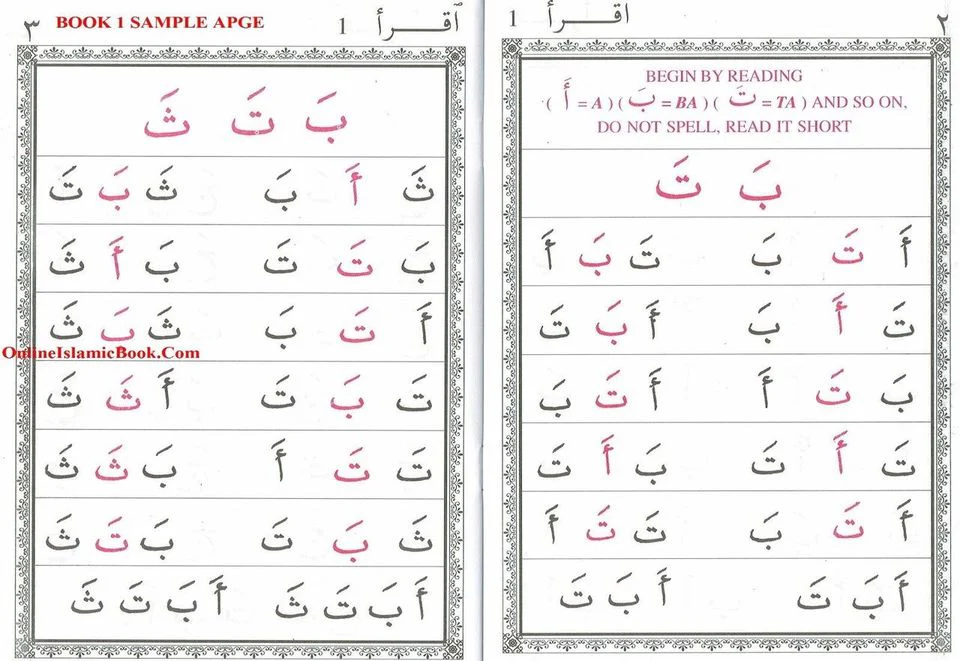 ٢ اقـــرأ 1
BEGIN BY READING
( أَ = A ) ( بَ = BA ) ( تَ = TA ) AND SO ON,
DO NOT SPELL, READ IT SHORT
بَ تَ
أَ تَ بَ تَ بَ أَ
تَ أَ بَ أَ بَ تَ
بَ تَ أَ أَ تَ بَ
تَ أَ تَ بَ أَ تَ
أَ تَ بَ تَ تَ أَ
أَ بَ تَ أَ بَ تَ
اقـــرأ 1 ٣
BOOK 1 SAMPLE APGE
بَ تَ ثَ
ثَ أَ بَ ثَ بَ تَ
بَ تَ تَ بَ أَ ثَ
أَ تَ بَ ثَ بَ ثَ
OnlineIslamicBook.Com
تَ بَ تَ أَ ثَ ثَ
تَ تَ أَ بَ ثَ ثَ
ثَ بَ تَ بَ تَ ثَ
أَ بَ تَ ثَ أَ بَ تَ ثَ